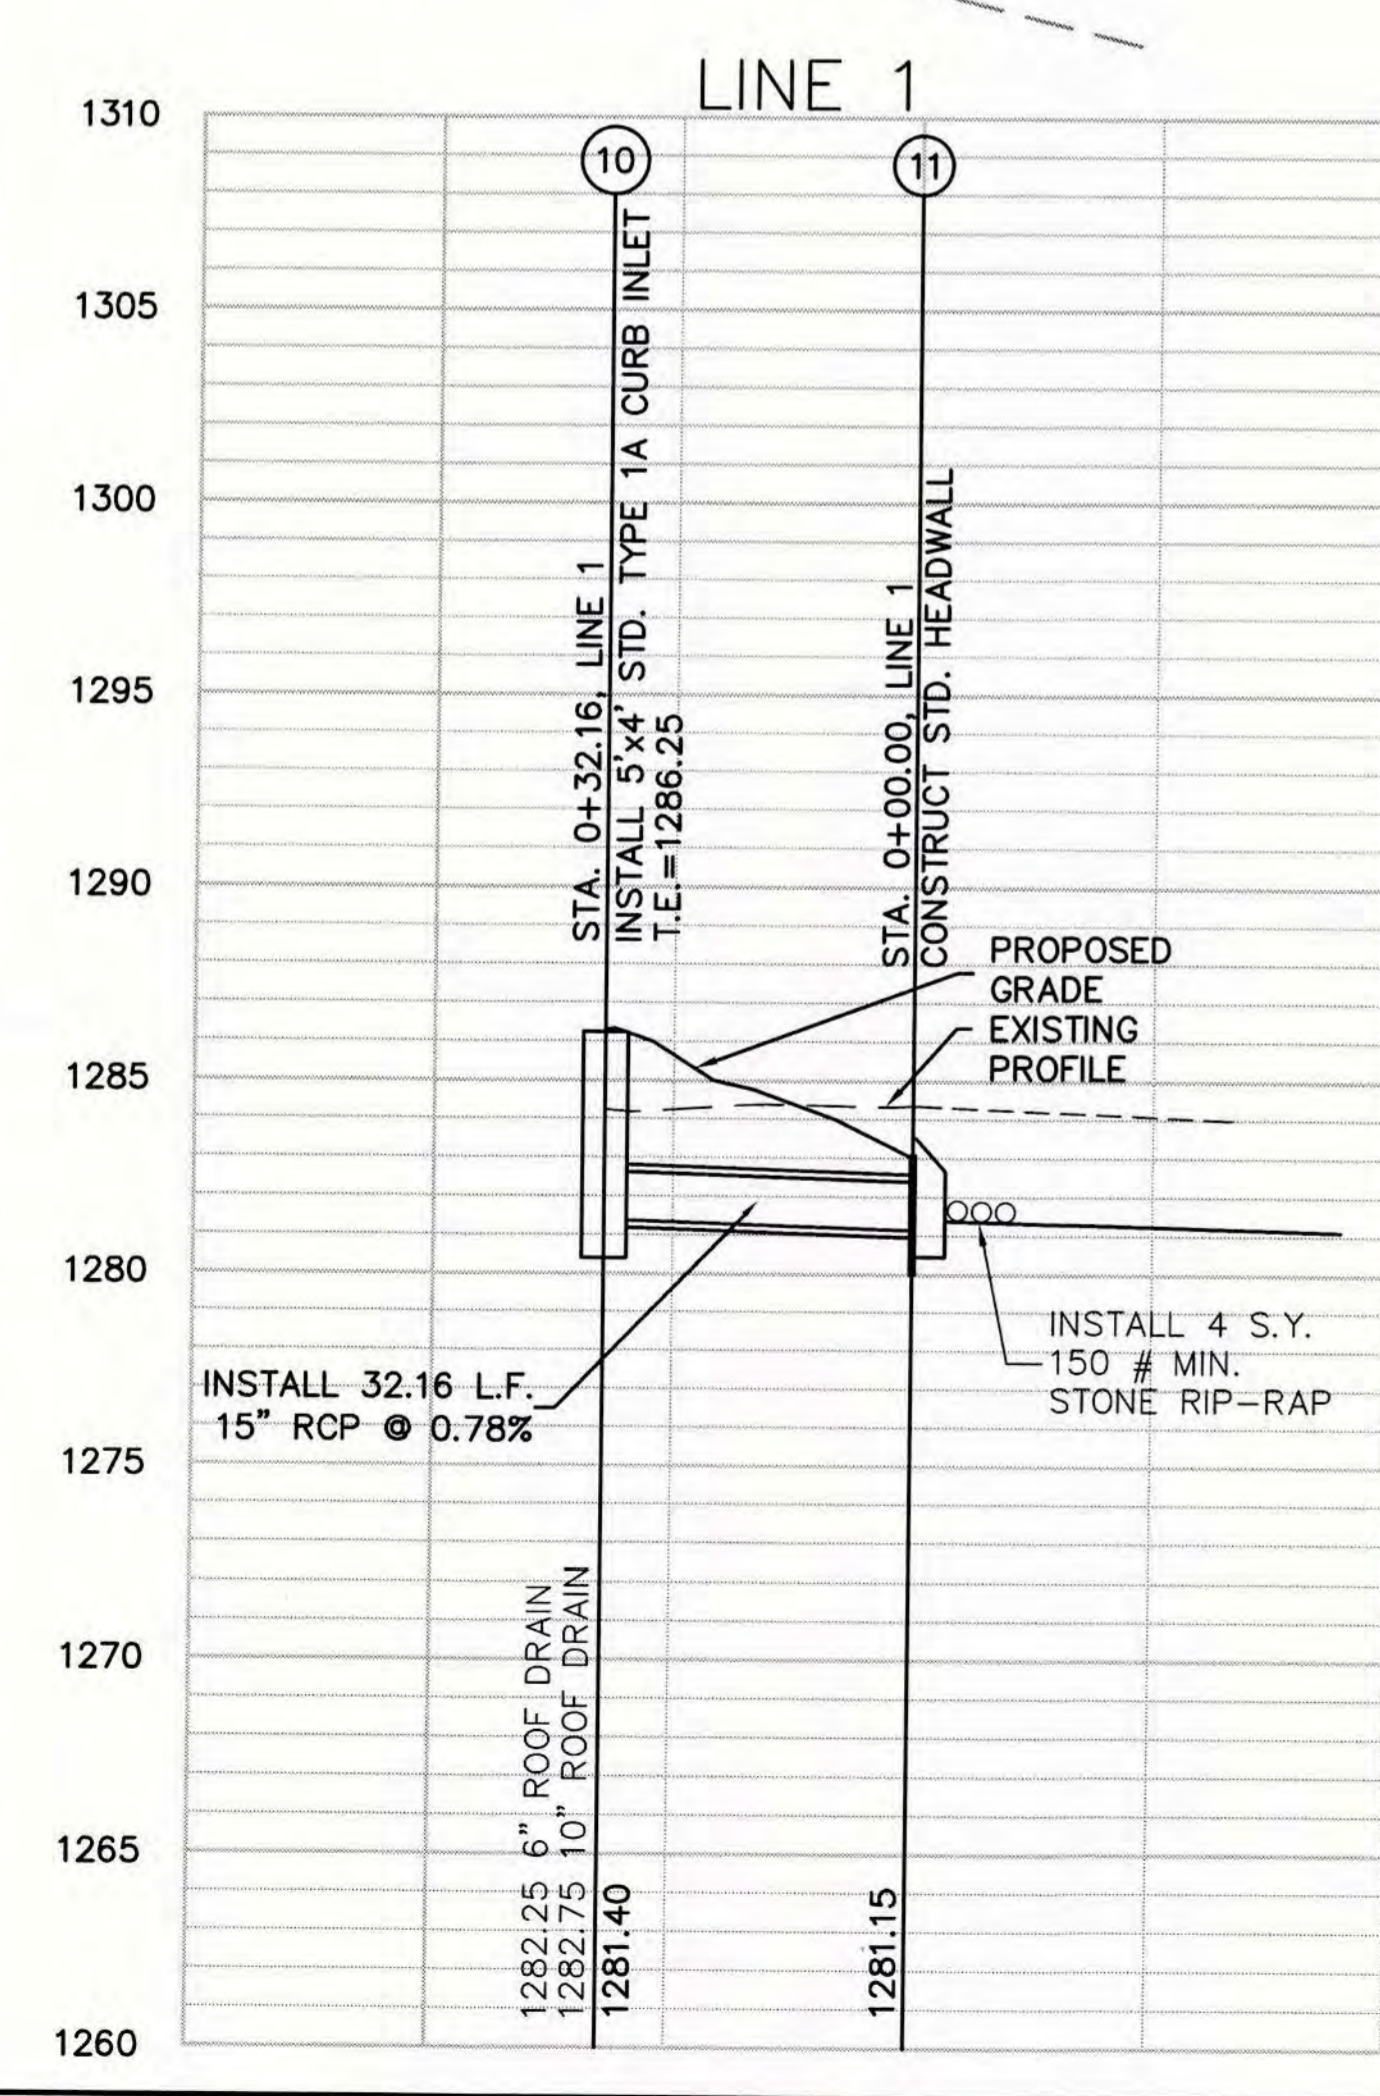 LINE 1
1310
1305
1300
1295
1290
1285
1280
1275
1270
1265
1260
10
11
STA. 0+32.16, LINE 1
INSTALL 5'x4' STD. TYPE 1A CURB INLET
T.E.=1286.25
STA. 0+00.00, LINE 1
CONSTRUCT STD. HEADWALL
PROPOSED
GRADE
EXISTING
PROFILE
INSTALL 4 S.Y.
150 # MIN.
STONE RIP-RAP
INSTALL 32.16 L.F.
15" RCP @ 0.78%
1282.25 6" ROOF DRAIN
1282.75 10" ROOF DRAIN
1281.40
1281.15